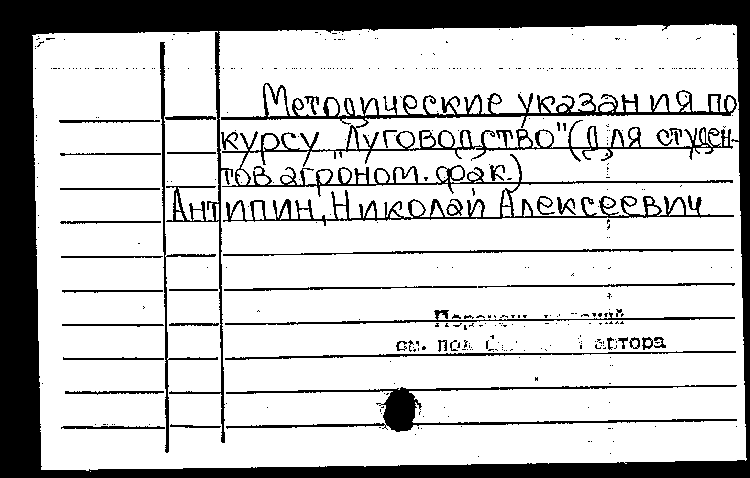 Методические указания по
курсу "Луговодство" (для студен-
тов агроном. фак.)
Антипин, Николай Алексеевич
см. под автора